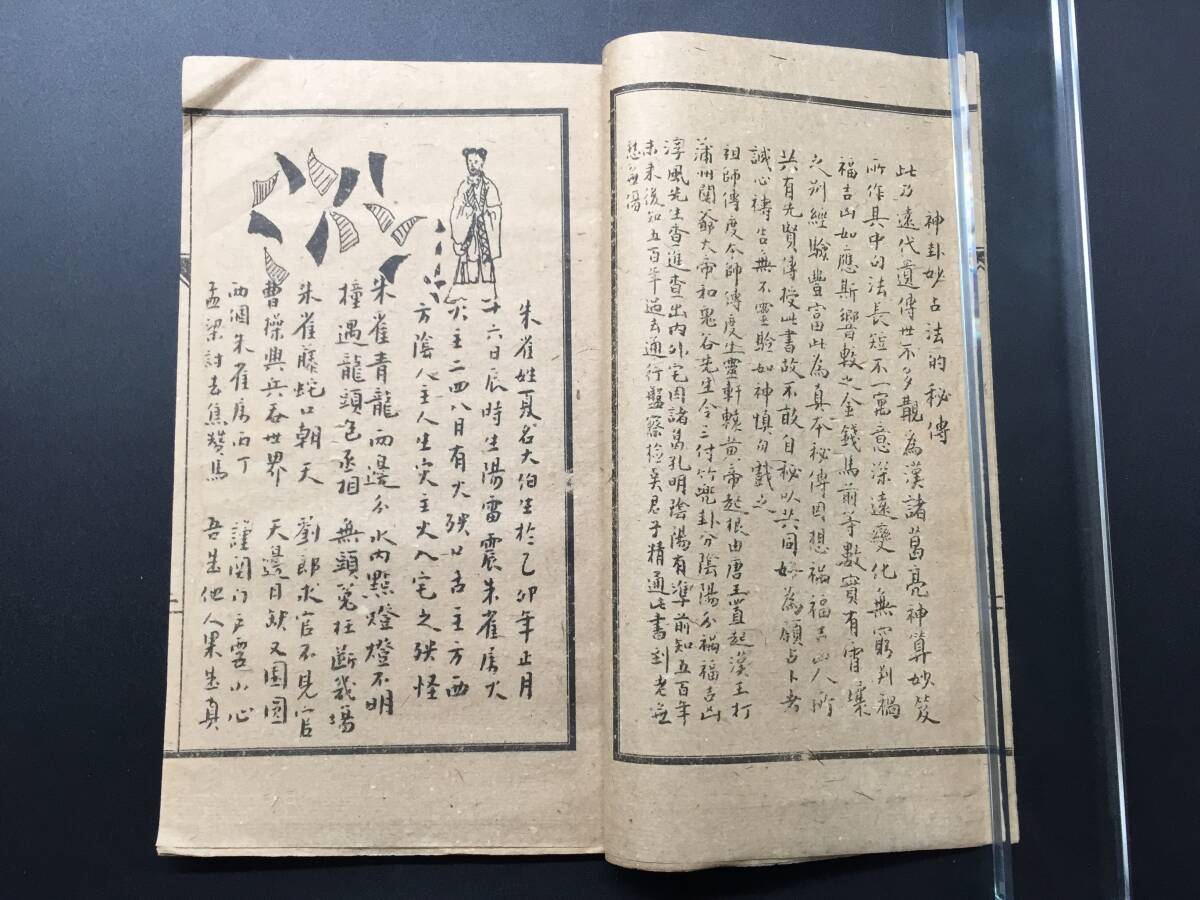 神卦妙占法的秘傳
此乃遠代遺傳世不多觀為漢諸葛亮神算妙笈
所作其中句法長短不一寓意深遠變化無窮判禍
福吉凶如應斯響較之金錢馬前等數實有霄壤
之別經驗豐富此為真本秘傳因想禍福吉凶人所
共有先賢傳授此書故不敢自秘以共同好為願占卜者
誠心禱告無不靈驗如神慎勿戲之
祖師傳度本師傳度生靈軒轅黃帝起根由唐王置起漢王打
蒲州關爺大帝和鬼谷先生令三付竹兜卦分陰陽分禍福吉凶
淳風先生查進查出內外宅因諸葛孔明陰陽有準前知五百年
未來後知五百年過去通行盤察檢吴君子精通此書到老
愁無傷
朱雀姓夏名大伯生於乙卯年正月
十六日辰時生陽雷震朱雀属火
主二四八月有火殃口舌主方西
方陰人主人生灾主火入宅之殃怪
朱雀青龍兩邊分 水內點燈燈不明
撞遇龍頭包丞相 無頭冤枉斷幾場
朱雀藤蛇口朝天 劉郎求官不見官
曹操興兵吞世界 天邊月缺又團圓
兩個朱雀属丙丁 謹関门户要小心
孟梁討去焦贊馬 吾生他人果生真